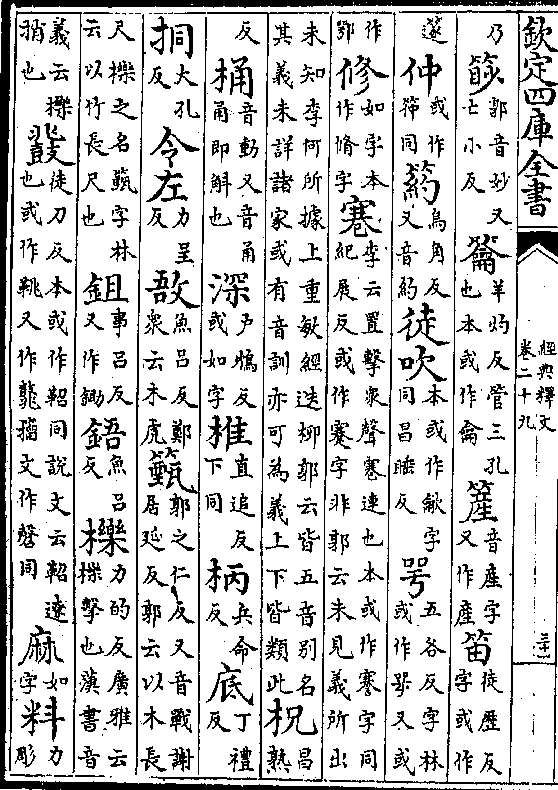 欽定四庫全書
經典釋文
卷二十九
乃篎郭音妙又亡小反籥羊灼反管三孔也本或作龠簅音產字又作產笛徒歷反字或作
蓫仲或作筗同箹烏角反又音約徒吹本或作龡字同昌睡反咢五各反字林或作㗁又或
作鄂修如字本作脩字寋李云置擊衆聲寋連也本或作謇字同紀展反或作蹇字非郭云未見義所出
未知李何所據上重敏經迭柳郭云皆五音別名其義未詳諸家或有音訓亦可為義上下皆類此柷昌熟
反桶音動又音甬甬即斛也深尸鴆反或如字椎直追反下同柄兵命反底丁禮反
挏大孔反令左力呈反敔魚呂反鄭衆云木虎籈郭之仁反又音戰謝居延反郭云以木長
尺櫟之名甄字林云以竹長尺也鉏事呂反又作鋤鋙魚呂反櫟力的反廣雅云櫟擊也漢書音
義云櫟捎也鼗徒刀反本或作鞀同說文云鞀遼也或作鞉又作籀文作磬同麻如字料力彫